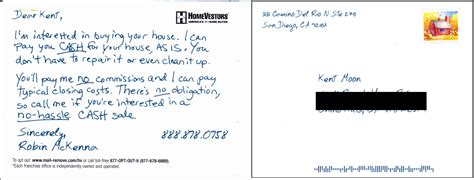 Dear Kent,
HomeVestors
AMERICA'S #1 HOME BUYER
I'm interested in buying your house. I can
pay you CASH for your house, AS IS. You
don't have to repair it or even clean it up.
You'll pay me no commissions and I can pay
typical closing costs. There's no obligation,
so call me if you're interested in a
no-hassle CASH sale
Sincerely,
Robin McKenna
888.878.0758
To opt out: www.mail-remove.com/hv or call toll-free 877-OPT-OUT-9 (877-678-6889).
*Each franchise office is independently owned and operated.
Camino Del Rio N Ste 276
San Diego, CA
Kent Moon